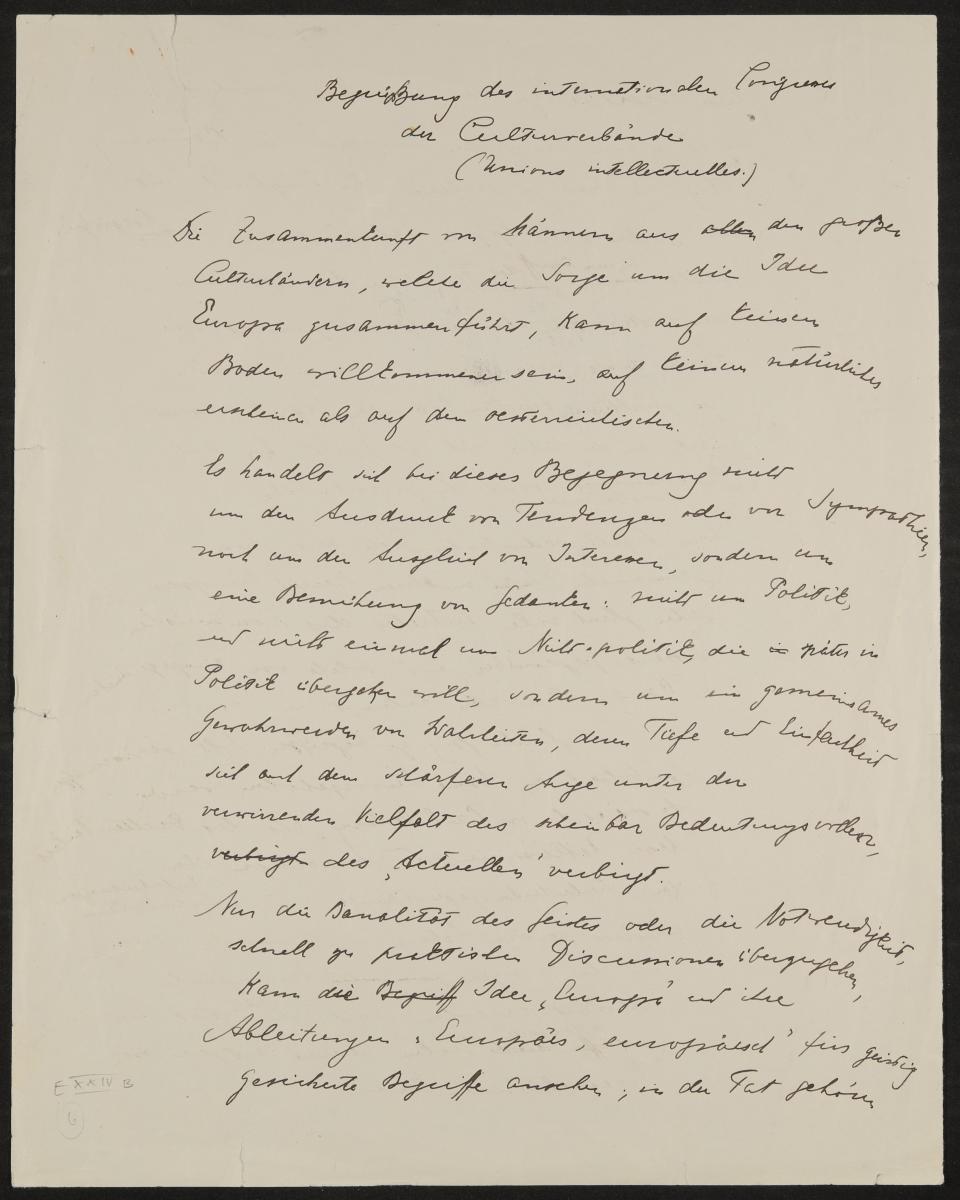 Begrüßung des internationalen Congresses
der Culturverbände
(Unions intellectuelles.)
Die Zusammenkunft von Männern aus allen den großen
Culturländern, welche die Sorge um die Idee
Europa zusammenführt, kann auf keinem
Boden willkommener sein, auf keinem natürlicher
erscheinen als auf dem oesterreichischen.
Es handelt sich bei dieser Begegnung nicht
um den Ausdruck von Tendenzen oder von Sympathien,
noch um den Ausgleich von Interessen, sondern um
eine Bemühung von Gedanken: nicht um Politik,
und nicht einmal um Nicht-politik, die in später in
Politik übergehen will, sondern um ein gemeinsames
Gewahrwerden von Wahrheiten, deren Tiefe und Einfachheit
sich auch dem schärferen Auge unter der
verwirrenden Vielfalt des scheinbar Bedeutungsvollen,
verbirgt des „Actuellen“ verbirgt.
Nur die Banalität des Geistes oder die Notwendigkeit,
schnell zu praktischen Discussionen überzugehen,
kann die Begriff Idee „Europa“ und ihre
Ableitungen „Europäer, europäisch“ für geistig
gesicherte Begriffe ansehen; in der Tat gehören
E XXIV B
6